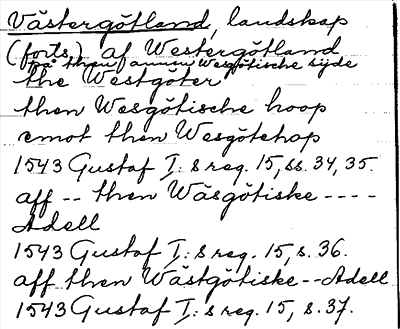 Västergötland, landskap
(forts.) af Westergötland
på then annan Wesgötische sijde
the Westgöter
then Wesgötische hoop
emot then Wesgötehop
1543 Gustaf I:s reg. 15, ss. 34, 35.
aff -- then Wäsgötiske ----
Adell
1543 Gustaf I:s reg. 15, s. 36.
aff then Wästgötiske -- Adell
1543 Gustaf I:s reg. 15, s. 37.